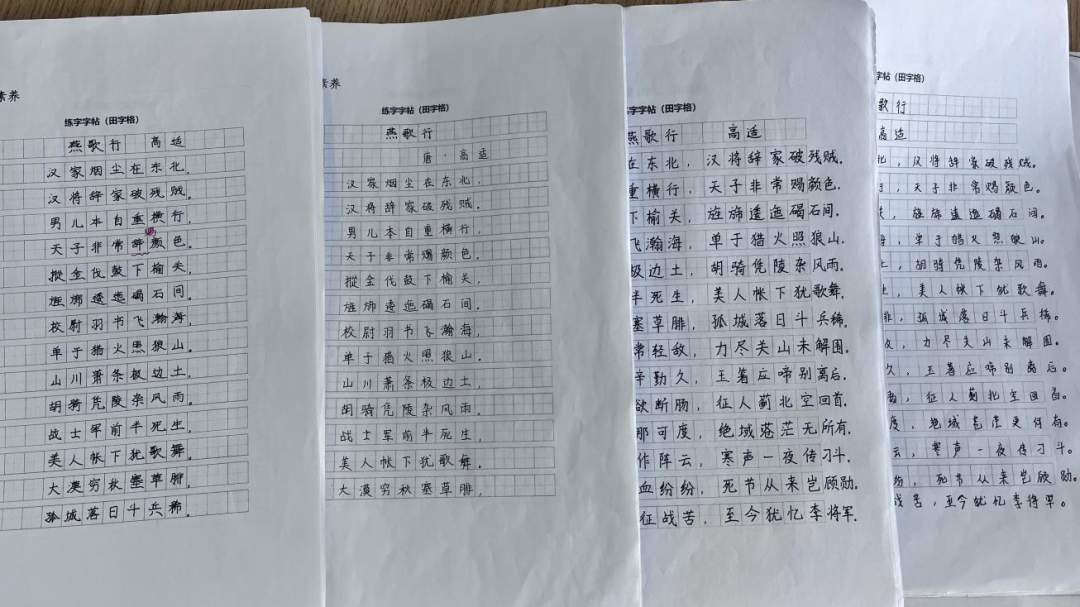 素养
练字字帖（田字格）
燕歌行 高适
汉家烟尘在东北，
汉将辞家破残贼。
男儿本自重横行，
天子非常辞颜色。
赐
摐金伐鼓下榆关，
旌旆逶迤碣石间。
校尉羽书飞瀚海，
单于猎火照狼山。
山川萧条极边土，
胡骑凭陵杂风雨。
战士军前半死生，
美人帐下犹歌舞。
大漠穷秋塞草腓，
孤城落日斗兵稀。
素养
练字字帖（田字格）
燕歌行
唐·高适
汉家烟尘在东北，
汉将辞家破残贼。
男儿本自重横行，
天子非常赐颜色。
摐金伐鼓下榆关，
旌旆逶迤碣石间。
校尉羽书飞瀚海，
单于猎火照狼山。
山川萧条极边土，
胡骑凭陵杂风雨。
战士军前半死生，
美人帐下犹歌舞。
大漠穷秋塞草腓，
练字字帖（田字格）
燕歌行 高适
在东北，汉将辞家破残贼。
重横行，天子非常赐颜色。
下榆关，旌旆逶迤碣石间。
飞瀚海，单于猎火照狼山。
极边土，胡骑凭陵杂风雨。
半死生，美人帐下犹歌舞。
塞草腓，孤城落日斗兵稀。
常轻敌，力尽关山未解围。
辛勤久，玉箸应啼别离后。
欲断肠，征人蓟北空回首。
那可度，绝域苍茫无所有。
作阵云，寒声一夜传刁斗。
血纷纷，死节从来岂顾勋。
征战苦，至今犹忆李将军。
字帖（田字格）
歌行
高适
北，汉将辞家破残贼。
行，天子非常赐颜色。
关，旌旆逶迤碣石间。
海，单于猎火照狼山。
土，胡骑凭陵杂风雨。
生，美人帐下犹歌舞。
腓，孤城落日斗兵稀。
敌，力尽关山未解围。
久，玉箸应啼别离后。
肠，征人蓟北空回首。
度，绝域苍茫更何有。
云，寒声一夜传刁斗。
纷，死节从来岂顾勋。
战苦，至今犹忆李将军。